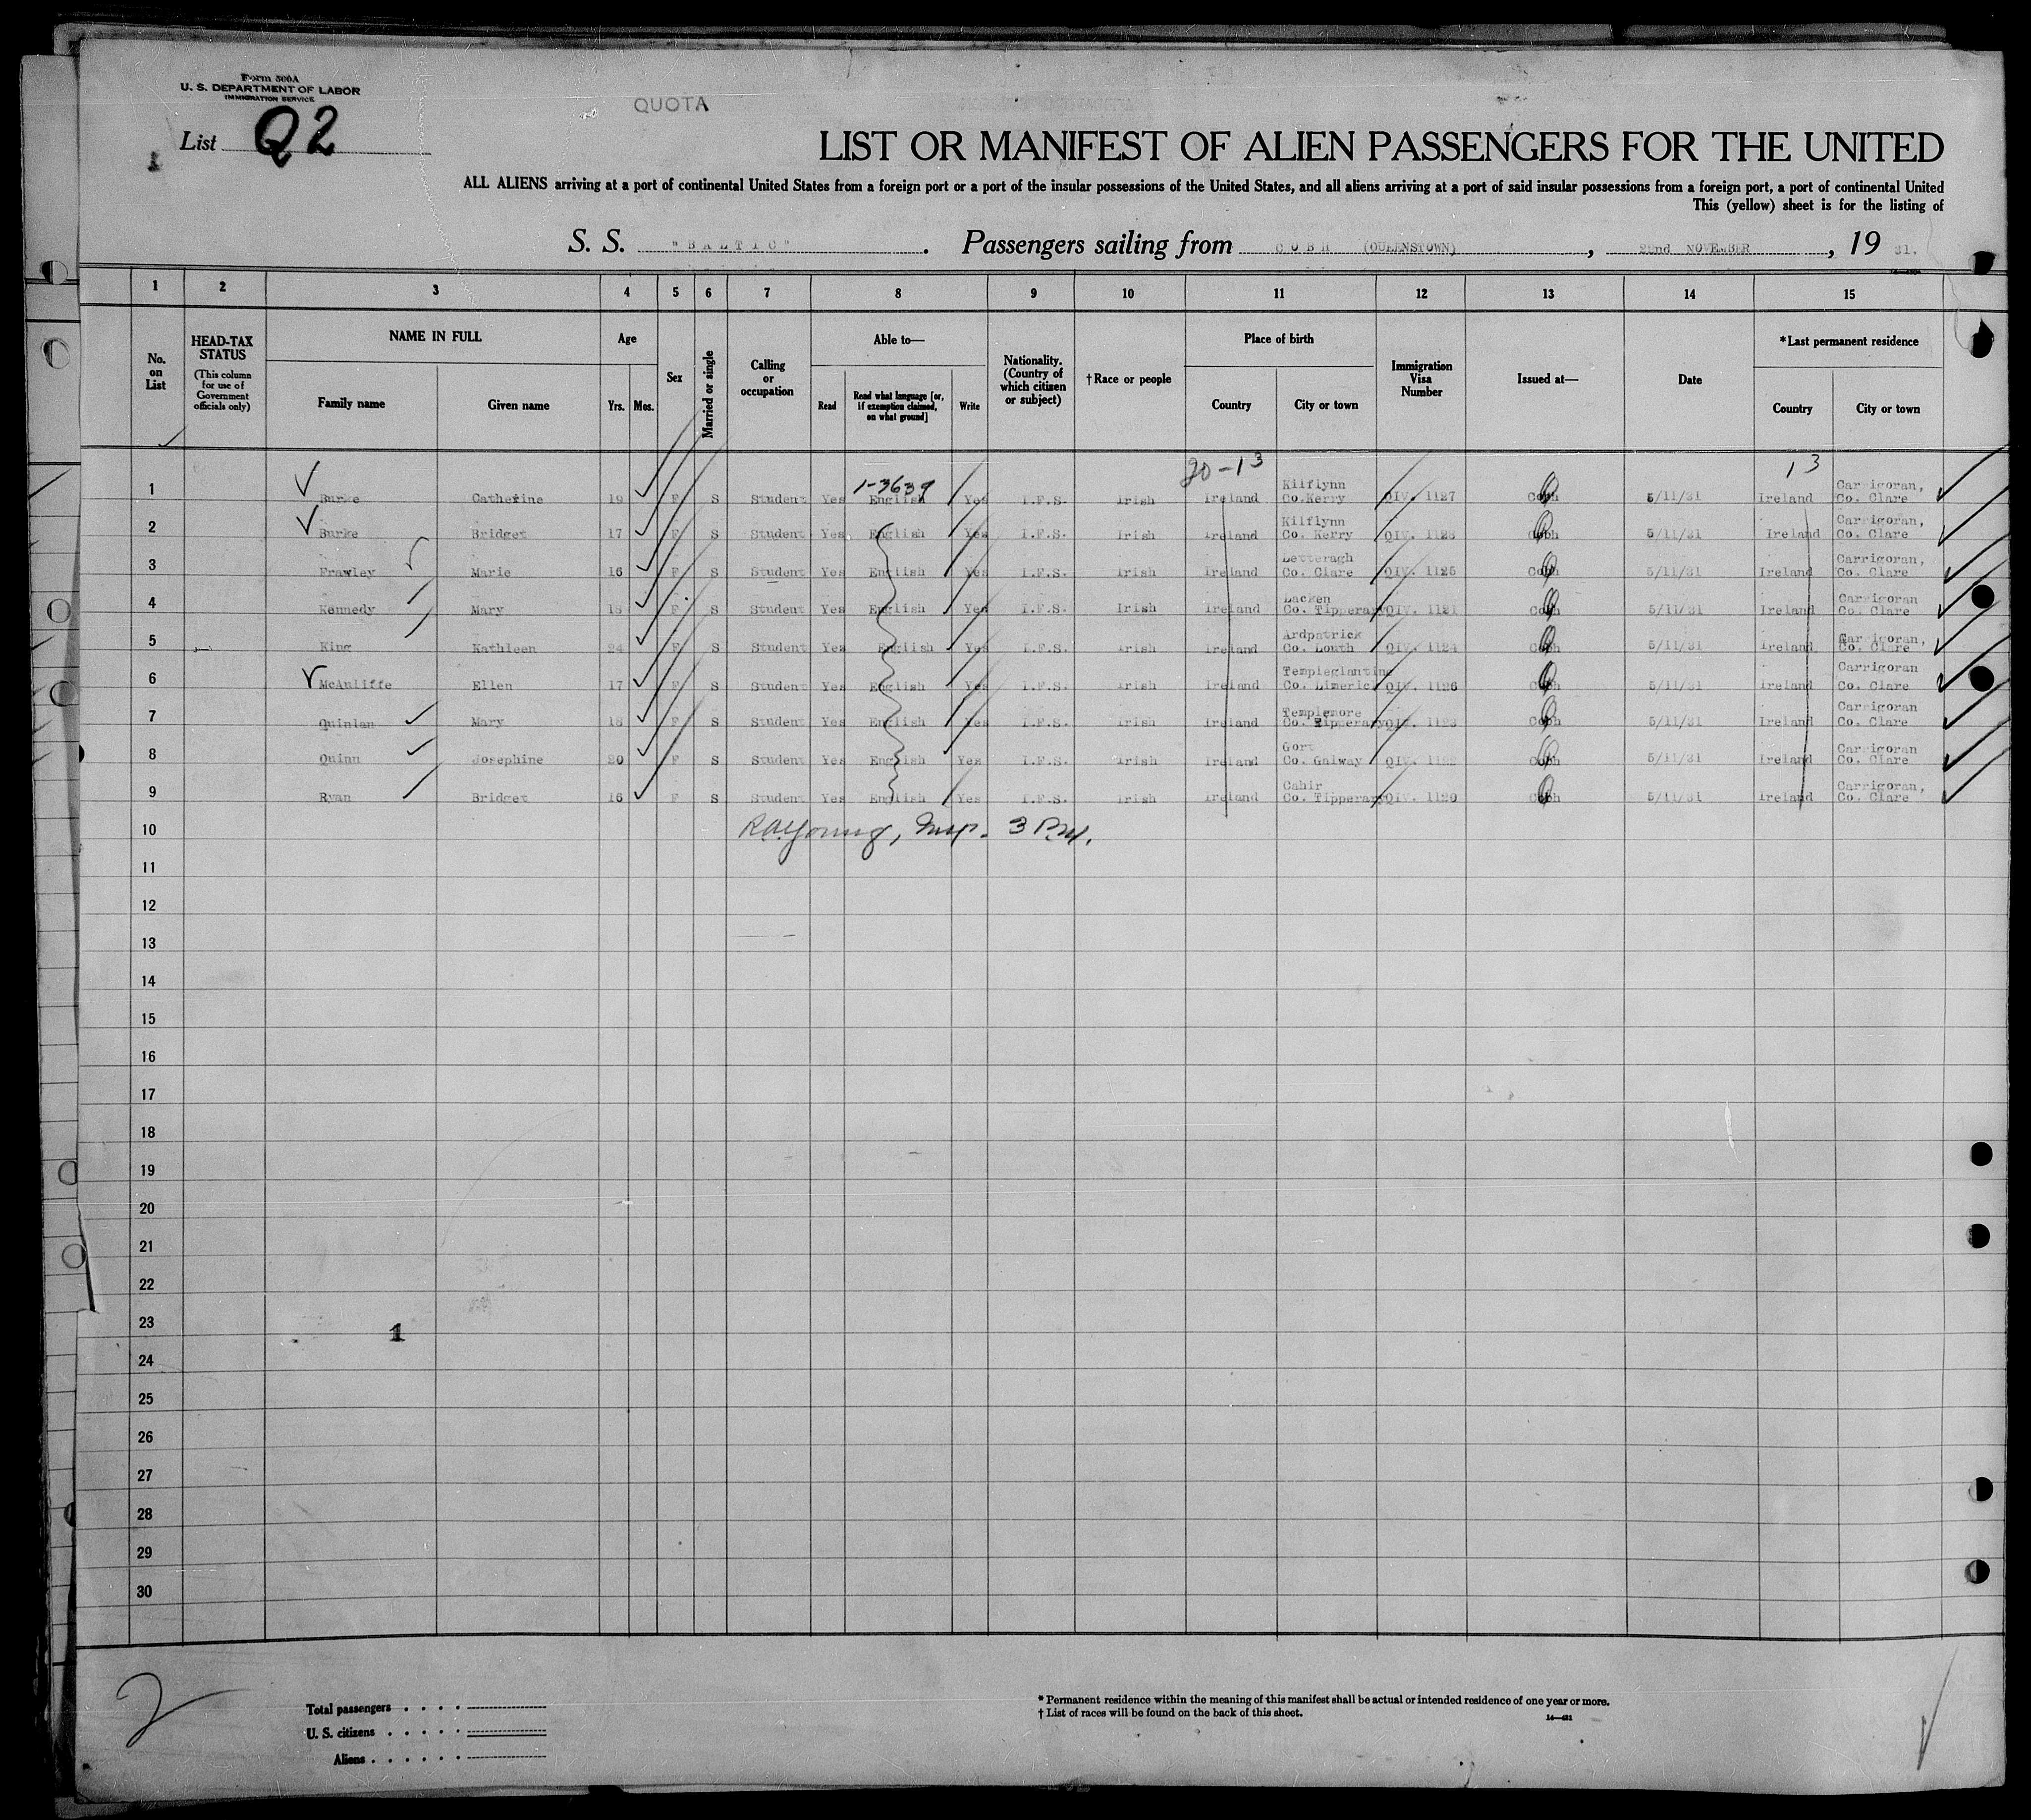 Form 500A
U. S. DEPARTMENT OF LABOR
IMMIGRATION SERVICE
QUOTA
List Q2
LIST OR MANIFEST OF ALIEN PASSENGERS FOR THE UNITED
ALL ALIENS arriving at a port of continental United States from a foreign port or a port of the insular possessions of the United States, and all aliens arriving at a port of said insular possessions from a foreign port, a port of continental United
This (yellow) sheet is for the listing of
S. S. "BALTIC". Passengers sailing from COBH (QUEENSTOWN), 22nd NOVEMBER, 19 31.
1 2 3 4 5 6 7 8 9 10 11 12 13 14 15
No. on List
HEAD-TAX STATUS
(This column for use of Government officials only)
NAME IN FULL
Family name Given name
Age
Yrs. Mos.
Sex
Married or single
Calling or occupation
Able to—
Read
Read what language [or, if exemption claimed, on what ground]
Write
Nationality. (Country of which citizen or subject)
† Race or people
Place of birth
Country City or town
Immigration Visa Number
Issued at—
Date
*Last permanent residence
Country City or town
1-3639 20-13 13
1 Burke Catherine 19 F S Student Yes English Yes I.F.S. Irish Ireland Kilflynn Co.Kerry QIV. 1127 Cobh 5/11/31 Ireland Carrigoran, Co. Clare
2 Burke Bridget 17 F S Student Yes English Yes I.F.S. Irish Ireland Kilflynn Co. Kerry QIV. 1128 Cobh 5/11/31 Ireland Carrigoran, Co. Clare
3 Frawley Marie 16 F S Student Yes English Yes I.F.S. Irish Ireland Letteragh Co. Clare QIV. 1125 Cobh 5/11/31 Ireland Carrigoran, Co. Clare
4 Kennedy Mary F S Student Yes English Yes I.F.S. Irish Ireland Lacken Co. Tipperary QIV. 1121 Cobh 5/11/31 Ireland Carrigoran Co. Clare
5 King Kathleen 24 F S Student Yes English Yes I.F.S. Irish Ireland Ardpatrick Co. Louth QIV. 1124 Cobh 5/11/31 Ireland Carrigoran, Co. Clare
6 McAuliffe Ellen 17 F S Student Yes English Yes I.F.S. Irish Ireland Templeglantine Co. Limerick QIV. 1126 Cobh 5/11/31 Ireland Carrigoran Co. Clare
7 Quinlan Mary 18 F S Student Yes English Yes I.F.S. Irish Ireland Templemore Co. Tipperary QIV. 1123 Cobh 5/11/31 Ireland Carrigoran Co. Clare
8 Quinn Josephine 20 F S Student Yes English Yes I.F.S. Irish Ireland Gort Co. Galway QIV. 1122 Cobh 5/11/31 Ireland Carrigoran Co. Clare
9 Ryan Bridget 16 F S Student Yes English Yes I.F.S. Irish Ireland Cahir Co. Tipperary QIV. 1120 Cobh 5/11/31 Ireland Carrigoran, Co. Clare
10 RA Young, Insp. 3 P.M.
11
12
13
14
15
16
17
18
19
20
21
22
23 1
24
25
26
27
28
29
30
2
Total passengers
U. S. citizens
Aliens
* Permanent residence within the meaning of this manifest shall be actual or intended residence of one year or more.
† List of races will be found on the back of this sheet.